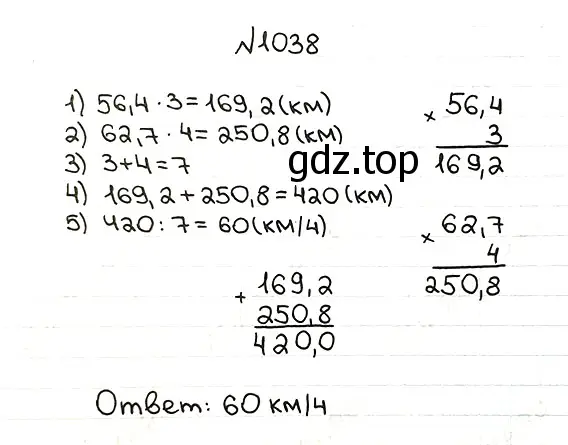 №1038
1) 56,4 · 3 = 169,2 (км)
2) 62,7 · 4 = 250,8 (км)
3) 3+4=7
4) 169,2 + 250,8 = 420 (км)
5) 420 : 7 = 60 (км/ч)
× 56,4
3
169,2
× 62,7
4
250,8
+ 169,2
250,8
420,0
Ответ: 60 км/ч
gdz.top